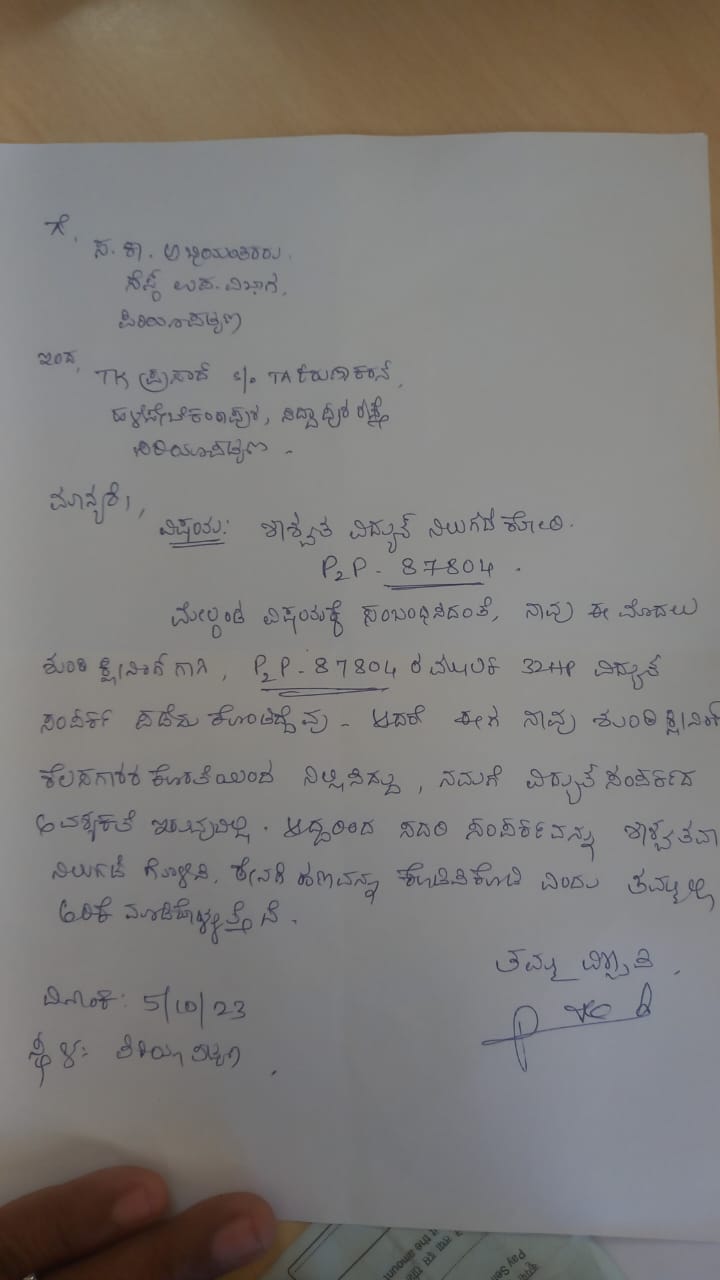 ಗೆ,
ಸ. ಕಾ. ಅಭಿಯಂತರರು.
ಸೆಸ್ಕ್ ಉಪ. ವಿಭಾಗ,
ಪಿರಿಯಾಪಟ್ಟಣ
ಇಂದ,
TK ಪ್ರಸಾದ್ S/o TA ಕರುಣಾಕರನ್,
ರಸ್ತೆ
ಪಿರಿಯಾಪಟ್ಟಣ.
ಮಾನ್ಯರೆ,
ವಿಷಯ: ಶಾಶ್ವತ ವಿದ್ಯುತ್ ನಿಲುಗಡೆ ಕೋರಿ.
P2P - 87804.
ಮೇಲ್ಕಂಡ ವಿಷಯಕ್ಕೆ ಸಂಬಂಧಿಸಿದಂತೆ, ನಾವು ಈ ಮೊದಲು
ಶುಂಠಿ ಕ್ಲೀನಿಂಗ್ ಗಾಗಿ, P2P - 87804 ರ ಮೂಲಕ 32HP ವಿದ್ಯುತ್
ಸಂಪರ್ಕ ಪಡೆದು ಕೊಂಡಿದ್ದೆವು - ಆದರೆ ಈಗ ನಾವು ಶುಂಠಿ ಕ್ಲೀನಿಂಗ್
ಕೆಲಸಗಾರರ ಕೊರತೆಯಿಂದ ನಿಲ್ಲಿಸಿದ್ದು, ನಮಗೆ ವಿದ್ಯುತ್ ಸಂಪರ್ಕದ
ಅವಶ್ಯಕತೆ ಇರುವುದಿಲ್ಲ. ಆದ್ದರಿಂದ ಸದರಿ ಸಂಪರ್ಕವನ್ನು ಶಾಶ್ವತವಾ
ನಿಲುಗಡೆ ಗೊಳಿಸಿ, ಠೇವಣಿ ಹಣವನ್ನು ಕೊಡಿಸಿಕೊಡಿ ಎಂದು ತಮ್ಮಲ್ಲಿ
ಅರಿಕೆ ಮಾಡಿಕೊಳ್ಳುತ್ತೇನೆ.
ತಮ್ಮ ವಿಶ್ವಾಸಿ,
ದಿನಾಂಕ: 5/10/23
ಸ್ಥಳ: ಪಿರಿಯಾಪಟ್ಟಣ,